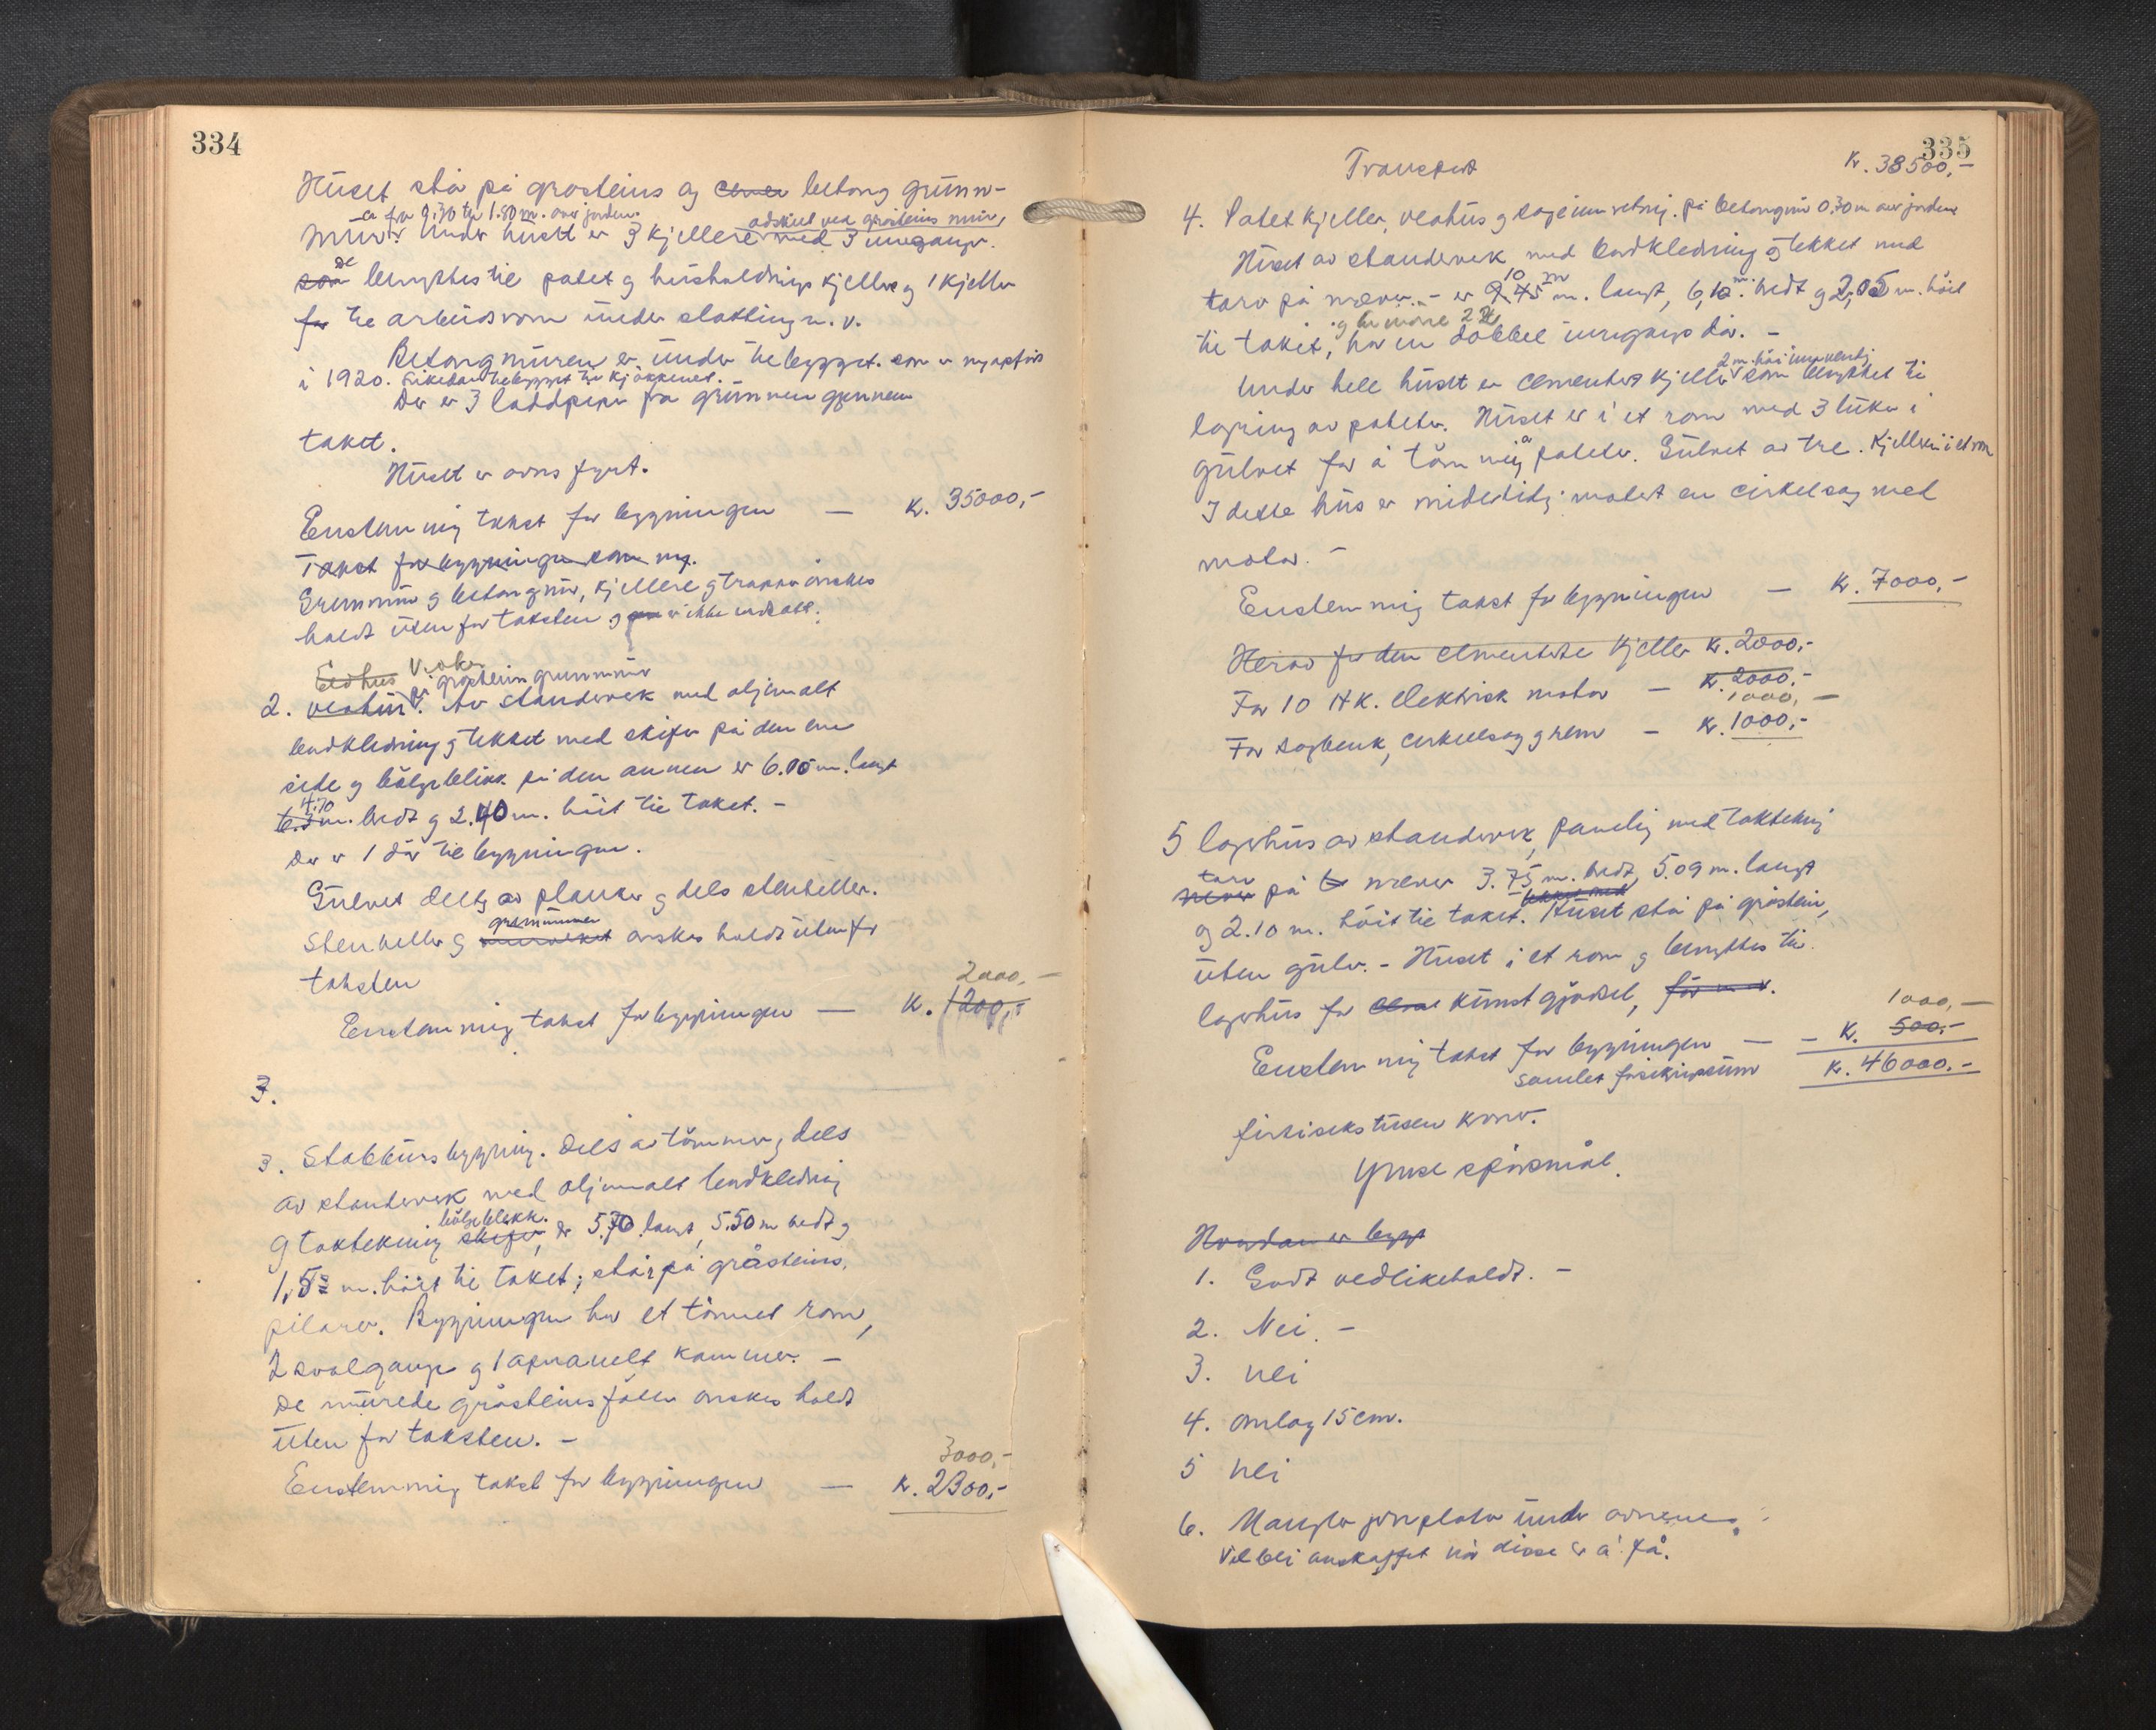 334
Huset stå på gråsteins og betong grunn-
ca fra 0.30 til 1.80 m. over jorden.
adskilt ved gråsteins mur,
mur. Under huset er 3 kjellere med 3 innganger.
de
som benyttes til potet og husholdnings kjellere og 1 kjeller
for til arbeidsrom under slakting m. v.
Betongmuren er under tilbygget som er nyopført
i 1920. Likedan tilbygget til kjøkkenet.
Der er 3 loddpiper fra grunnen gjennem
taket.
Huset er ovns fyrt.
Enstemmig takst for bygningen — Kr. 35000,-
Takst for bygningen som ny.
Grunnmur og betongmur, kjellere og trapper ønskes
holdt uten for taksten og er ikke medtatt.
Eldhus
på gråsteins grunnmur
2. vedhus. Av standerverk med oljemalt
bordkledning og tekket med skifer på den ene
side og bølgeblikk på den annen er 6.05 m. langt
4.70
6.3 m. bredt og 2.40 m. høit til taket. -
Der er 1 dør til bygningen.
Gulvet dels av planker og dels stenheller.
grunnmuren
Stenheller og murverket ønskes holdt uten for
taksten
2000,-
Enstemmig takst for bygningen — Kr. 1200,-
3.
3. Stabbursbygning. Dels av tømmer, dels
av standerverk med oljemalt bordkledning
bølgeblikk.
og taktekning skifer, er 5.70 langt, 5.50 m bredt og
m. høit til taket; står på gråsteins,
pilarer. Bygningen har et tømret rom,
2 svalganger og 1 panelt kammer. -
De murede gråsteinsføtter ønskes holdt
uten for taksten. -
3000,-
Enstemmig takst for bygningen — Kr. 2300,-
335
Transport Kr. 38500,-
4. Potet kjeller, vedhus og sageinnretning. på betongmur 0,30 m over jorden
Huset av standerverk med bordkledning og tekket med
10 m
torv på never. - er 9.45 m. langt, 6,10 m. bredt og 2,05 m. høit
til taket, har en dobbel inngangs dør. -
2 m. høi innvendig
Under hele huset er cementert kjeller som benyttes til
lagring av poteter. Huset er i et rom med 3 luker i
gulvet for å tømme i poteter. Gulvet av tre. Kjelleren i et rom
I dette hus er midlertidig montert en cirkelsag med
motor. -
Enstemmig takst for bygningen — Kr. 7000,-
Herav for den cementerte kjeller Kr. 2000,-
For 10 HK. elektrisk motor — Kr. 2000,-
1000,-
For sagbenk, cirkelsag og rem — Kr. 1000,-
5 lagerhus av standerverk, paneling med taktekning
torv
never på never 3.75 m. bredt, 5.09 m. langt
tekket med
og 2.10 m. høit til taket. Huset stå på gråstein,
uten gulv. - Huset i et rom og benyttes til
lagerhus for kunstgjødsel,
1000,-
Enstemmig takst for bygningen — Kr. 500,-
Samlet forsikringssum Kr. 46000.-
førtisekstusen kroner.
Ymse spørsmål.
Hvordan er bygg
1. Godt vedlikeholdt. -
2. Nei. -
3. nei
4. omlag 15 cm.
5 nei
6. Mangler jernplater under ovnene.
Vil bli anskaffet når disse er å få.